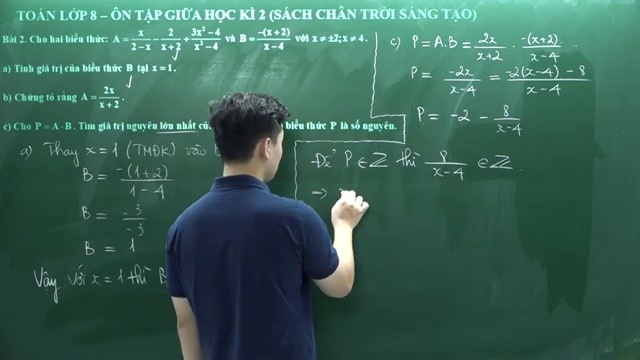 TOÁN LỚP 8 – ÔN TẬP GIỮA HỌC KÌ 2 (SÁCH CHÂN TRỜI SÁNG TẠO)
Bài 2. Cho hai biểu thức: A = x/(2−x) − 2/(x+2) + (3x²−4)/(x²−4) và B = −(x+2)/(x−4) với x ≠ ±2; x ≠ 4.
a) Tính giá trị của biểu thức B tại x = 1.
b) Chứng tỏ rằng A = 2x/(x+2).
c) Cho P = A·B. Tìm giá trị nguyên lớn nhất biểu thức P là số nguyên.
a) Thay x = 1 (TMĐK) vào
B = −(1+2)/(1−4)
B = −3/−3
B = 1
Vậy với x = 1 thì B
c) P = A.B = 2x/(x+2) · −(x+2)/(x−4)
P = −2x/(x−4) = (−2(x−4) − 8)/(x−4)
P = −2 − 8/(x−4)
Để P ∈ ℤ thì 8/(x−4) ∈ ℤ.
→